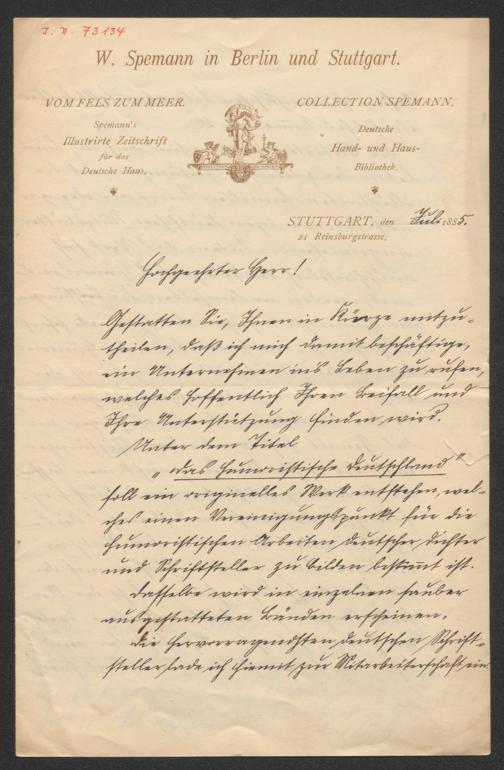 I. N. 73134
W. Spemann in Berlin und Stuttgart.
VOM FELS ZUM MEER.
Spemann's
Illustrirte Zeitschrift
für das
Deutsche Haus.
COLLECTION SPEMANN.
Deutsche
Hand- und Haus-
Bibliothek.
STUTTGART, den Juli 1885.
21 Reinsburgstrasse.
Hochgeehrter Herr!
Gestatten Sie, Ihnen in Kürze mitzu-
theilen, daß ich mich damit beschäftige,
ein Unternehmen ins Leben zu rufen,
welches hoffentlich Ihren Beifall und
Ihre Unterstützung finden wird.
Unter dem Titel
„Das humoristische Deutschland"
soll ein originelles Werk entstehen, wel-
ches einen Vereinigungspunkt für die
humoristischen Arbeiten deutscher Dichter
und Schriftsteller zu bilden bestimt ist.
Dasselbe wird in einzelnen sauber
ausgestatteten Bänden erscheinen.
Die hervorragendsten deutschen Schrift-
steller lade ich hiemit zur Mitarbeiterschaft ein.